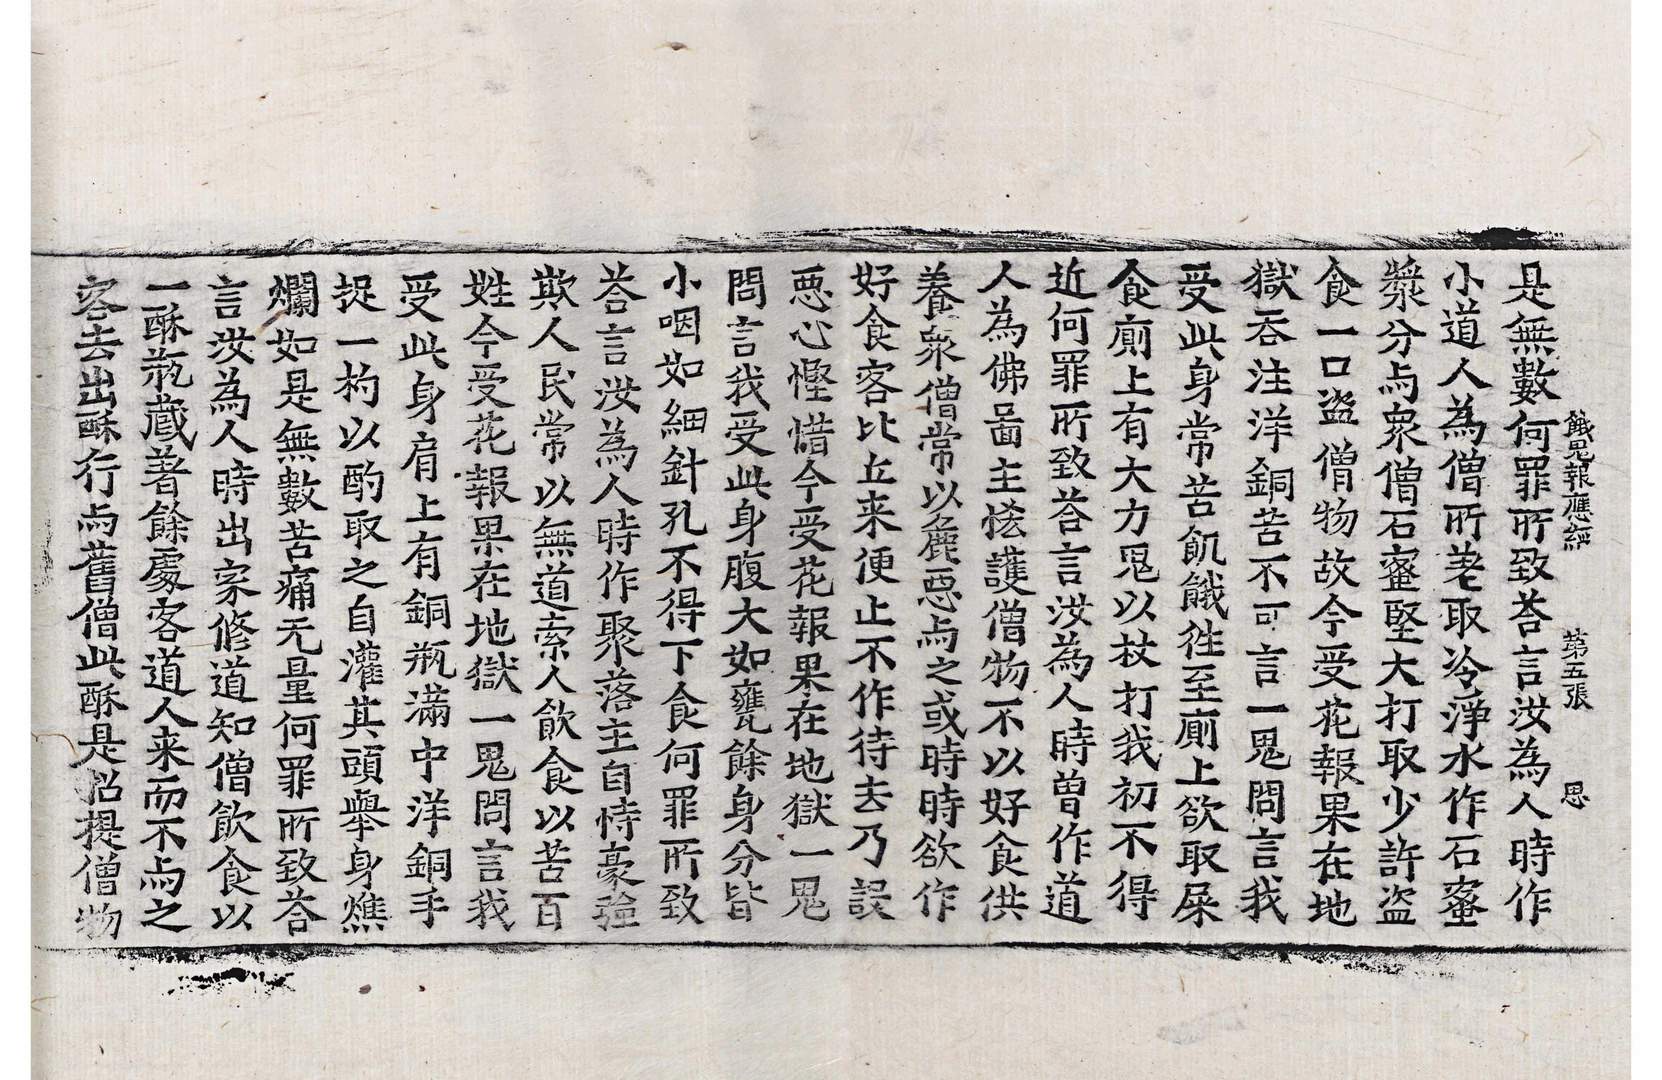 餓鬼報應經　第五張　思
是無數何罪所致荅言汝為人時作
小道人為僧所差取冷淨水作石蜜
漿分与衆僧石蜜堅大打取少許盗
食一口盗僧物故今受花報果在地
獄吞注洋銅苦不可言一鬼問言我
受此身常苦飢餓徃至廁上欲取屎
食廁上有大力鬼以杖打我初不得
近何罪所致荅言汝為人時曽作道
人為佛啚主悋護僧物不以好食供
養衆僧常以麁惡与之或時時欲作
好食客比丘来便止不作待去乃設
惡心慳惜今受花報果在地獄一鬼
問言我受此身腹大如甕餘身分皆
小咽如細針孔不得下食何罪所致
荅言汝為人時作聚落主自恃豪強
欺人民常以無道索人飲食以苦百
姓今受花報果在地獄一鬼問言我
受此身肩上有銅瓶滿中洋銅手
捉一杓以酌取之自灌其頭舉身燋
爛如是無數苦痛无量何罪所致荅
言汝為人時出家修道知僧飲食以
一酥瓶蔵著餘處客道人来而不与之
客去出酥行与舊僧此酥是招提僧物